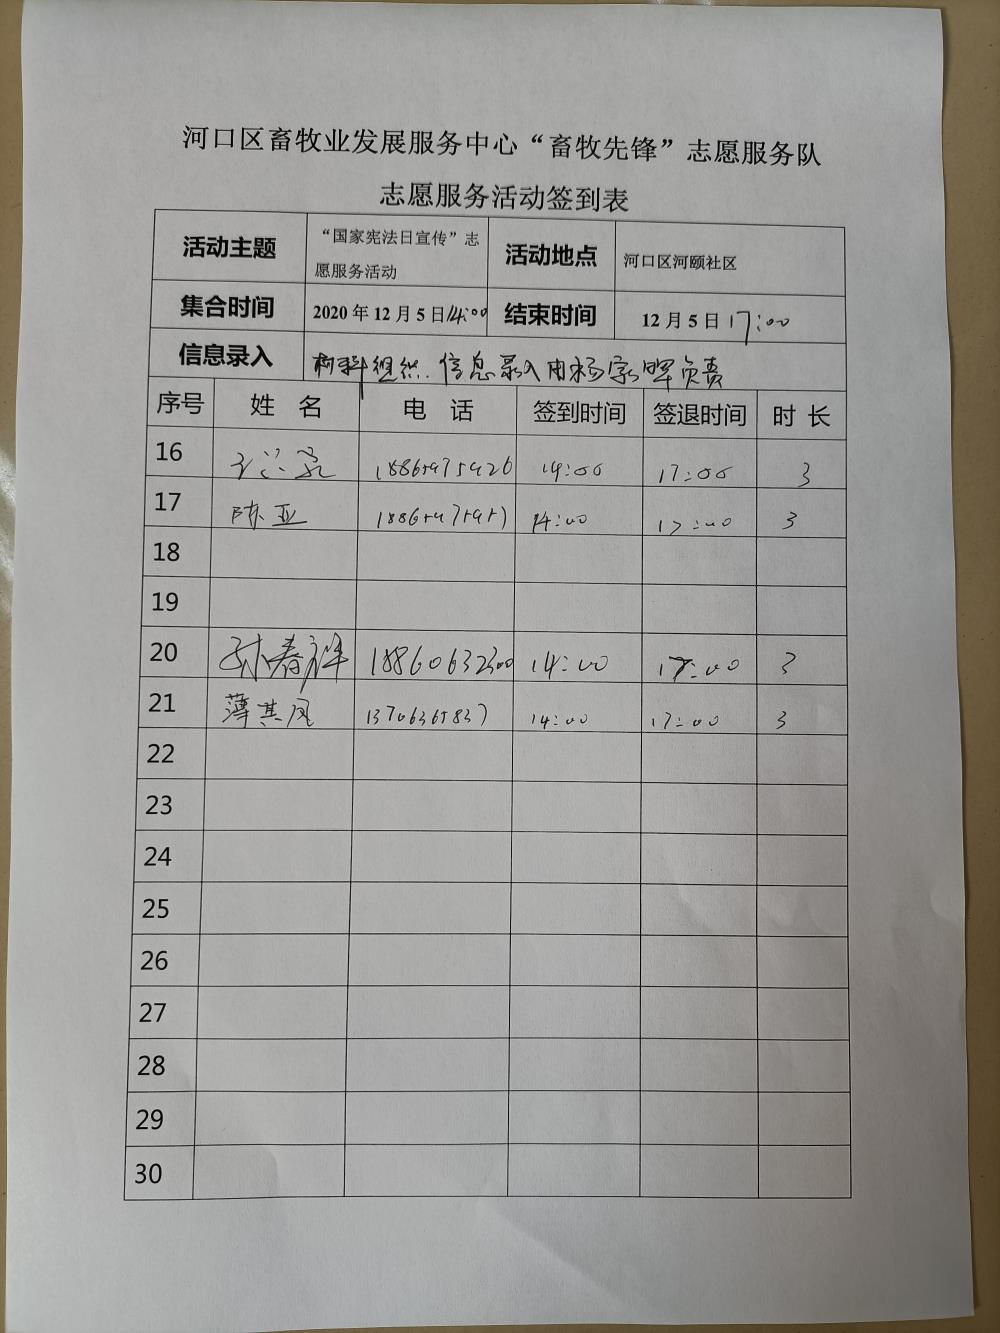 河口区畜牧业发展服务中心“畜牧先锋”志愿服务队
志愿服务活动签到表
活动主题 “国家宪法日宣传”志愿服务活动 活动地点 河口区河颐社区
集合时间 2020年12月5日14:00 结束时间 12月5日17:00
信息录入 组织.信息录入由杨家晖负责
序号 姓 名 电 话 签到时间 签退时间 时 长
16 14:00 17:00 3
17 陈亚 14:00 17:00 3
18
19
20 孙春祥 18860632300 14:00 17:00 3
21 薄其凤 13706365837 14:00 17:00 3
22
23
24
25
26
27
28
29
30